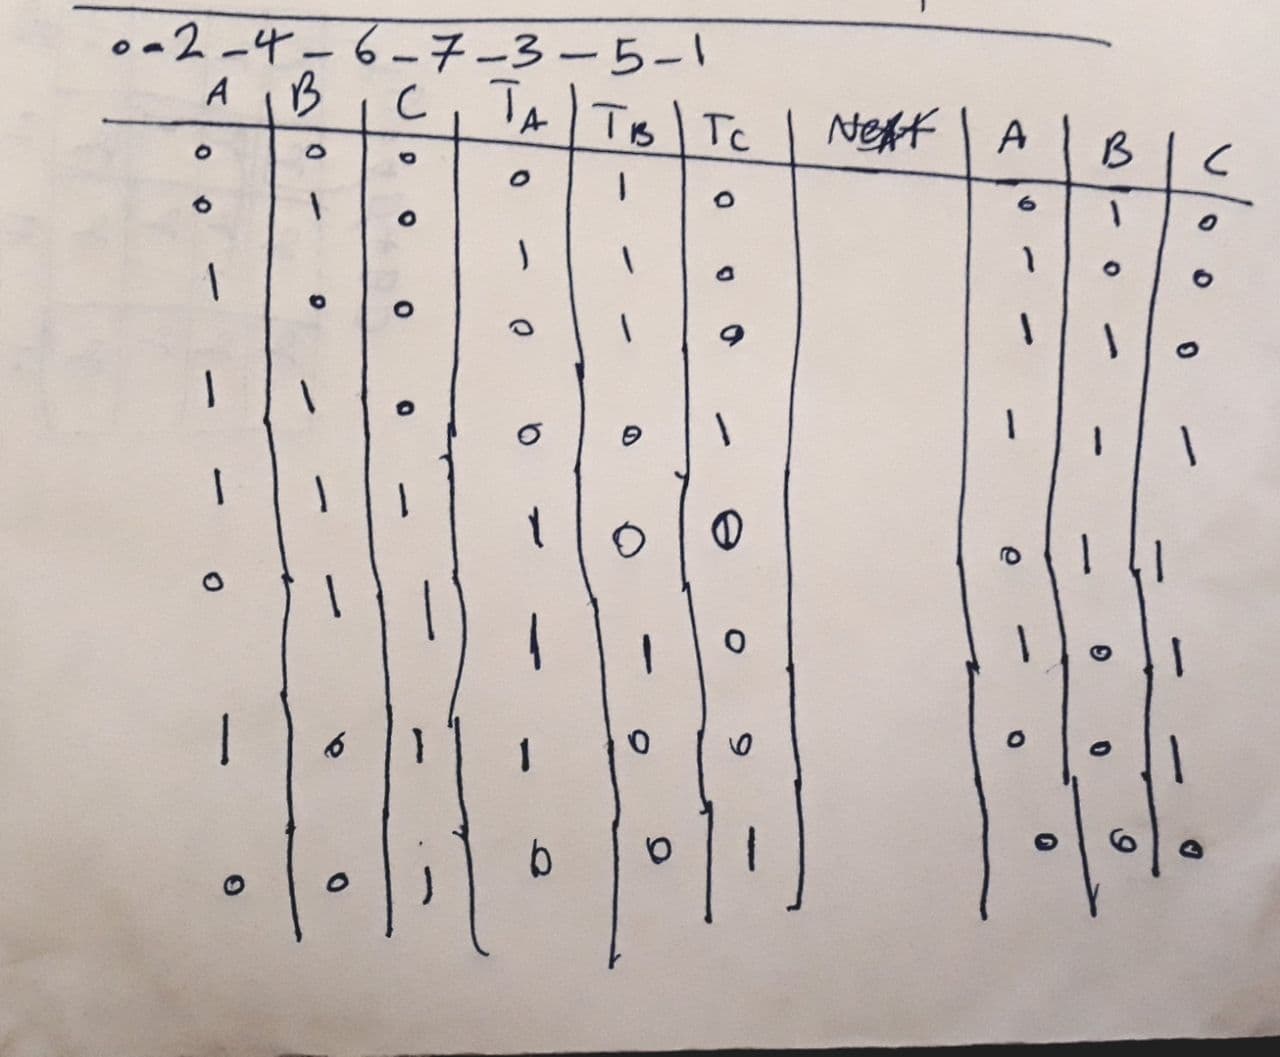 0-2-4-6-7-3-5-1
A B C TA TB TC Next A B C
0 0 0 0 1 0 0 1 0
0 1 0 1 1 0 1 0 0
1 0 0 0 1 0 1 1 0
1 1 0 0 0 1 1 1 1
1 1 1 1 0 0 0 1 1
0 1 1 1 1 0 1 0 1
1 0 1 1 0 0 0 0 1
0 0 1 0 0 1 0 0 0